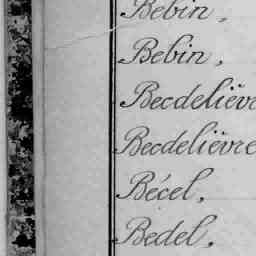 Bebin,
Bebin,
Becdelièvre
Becdelièvre
Bécel,
Bedel,